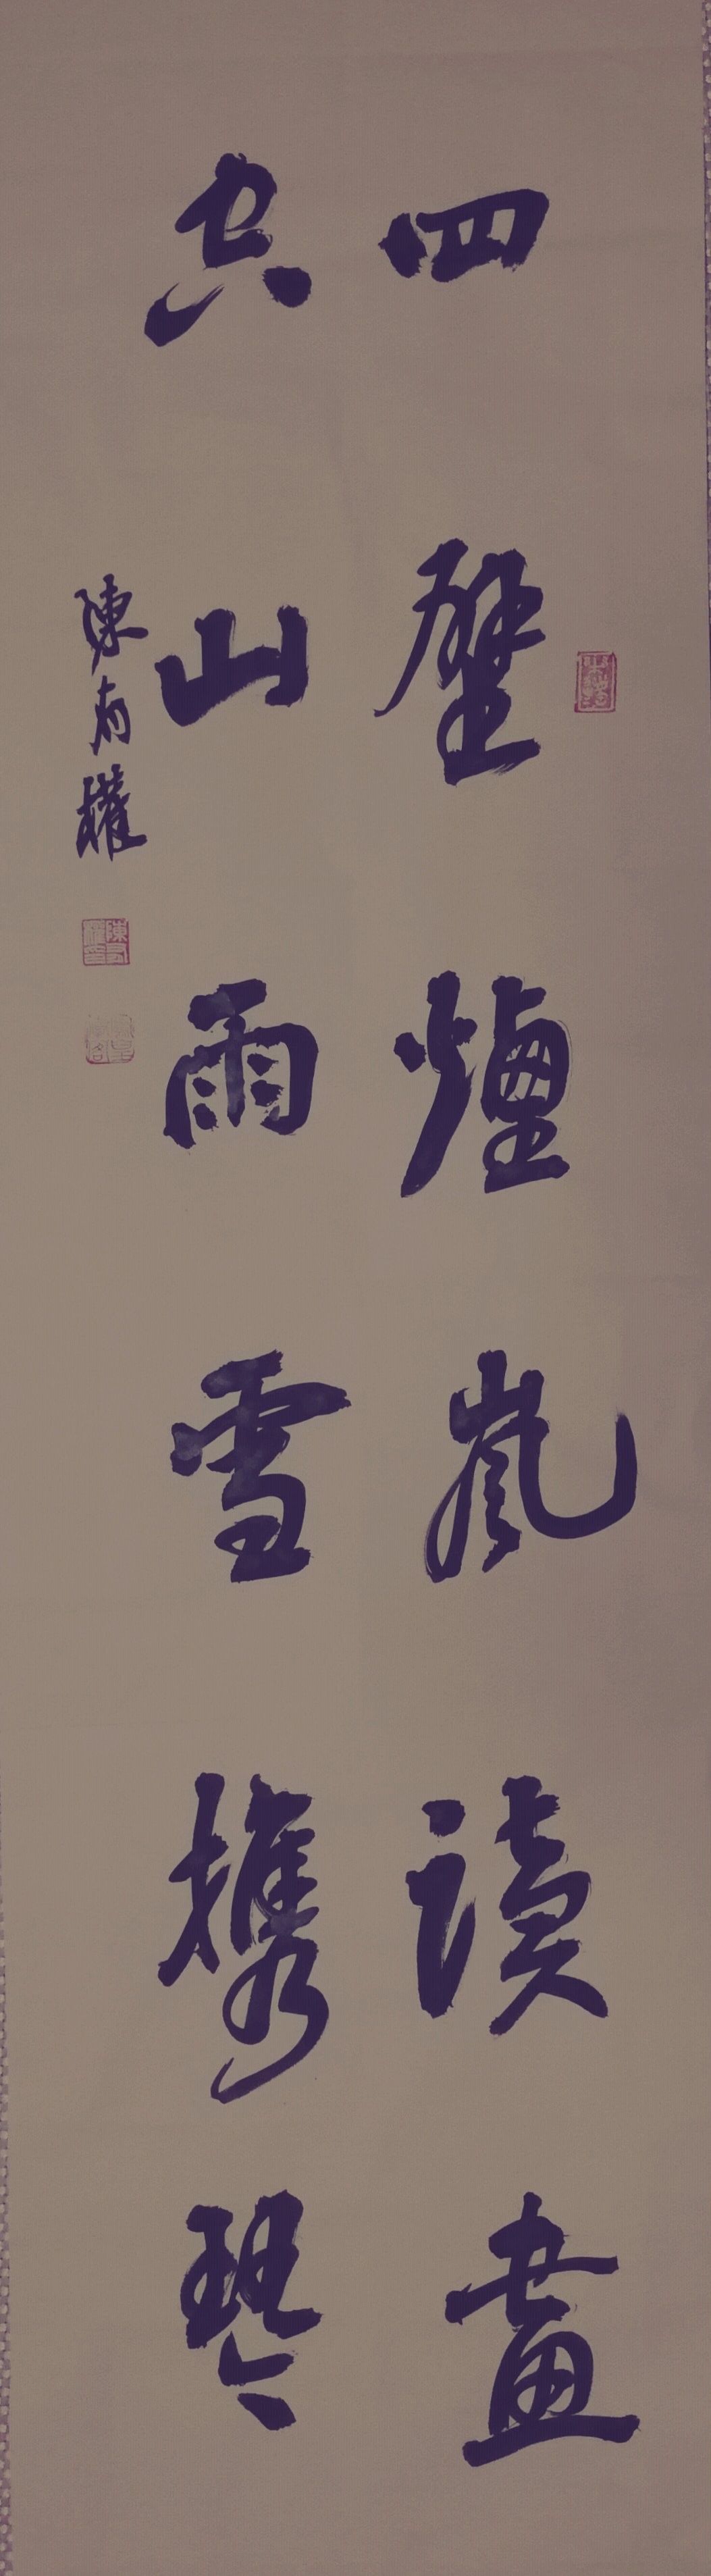 四壁煙嵐讀畫
空山雨雪携琴
陳有權